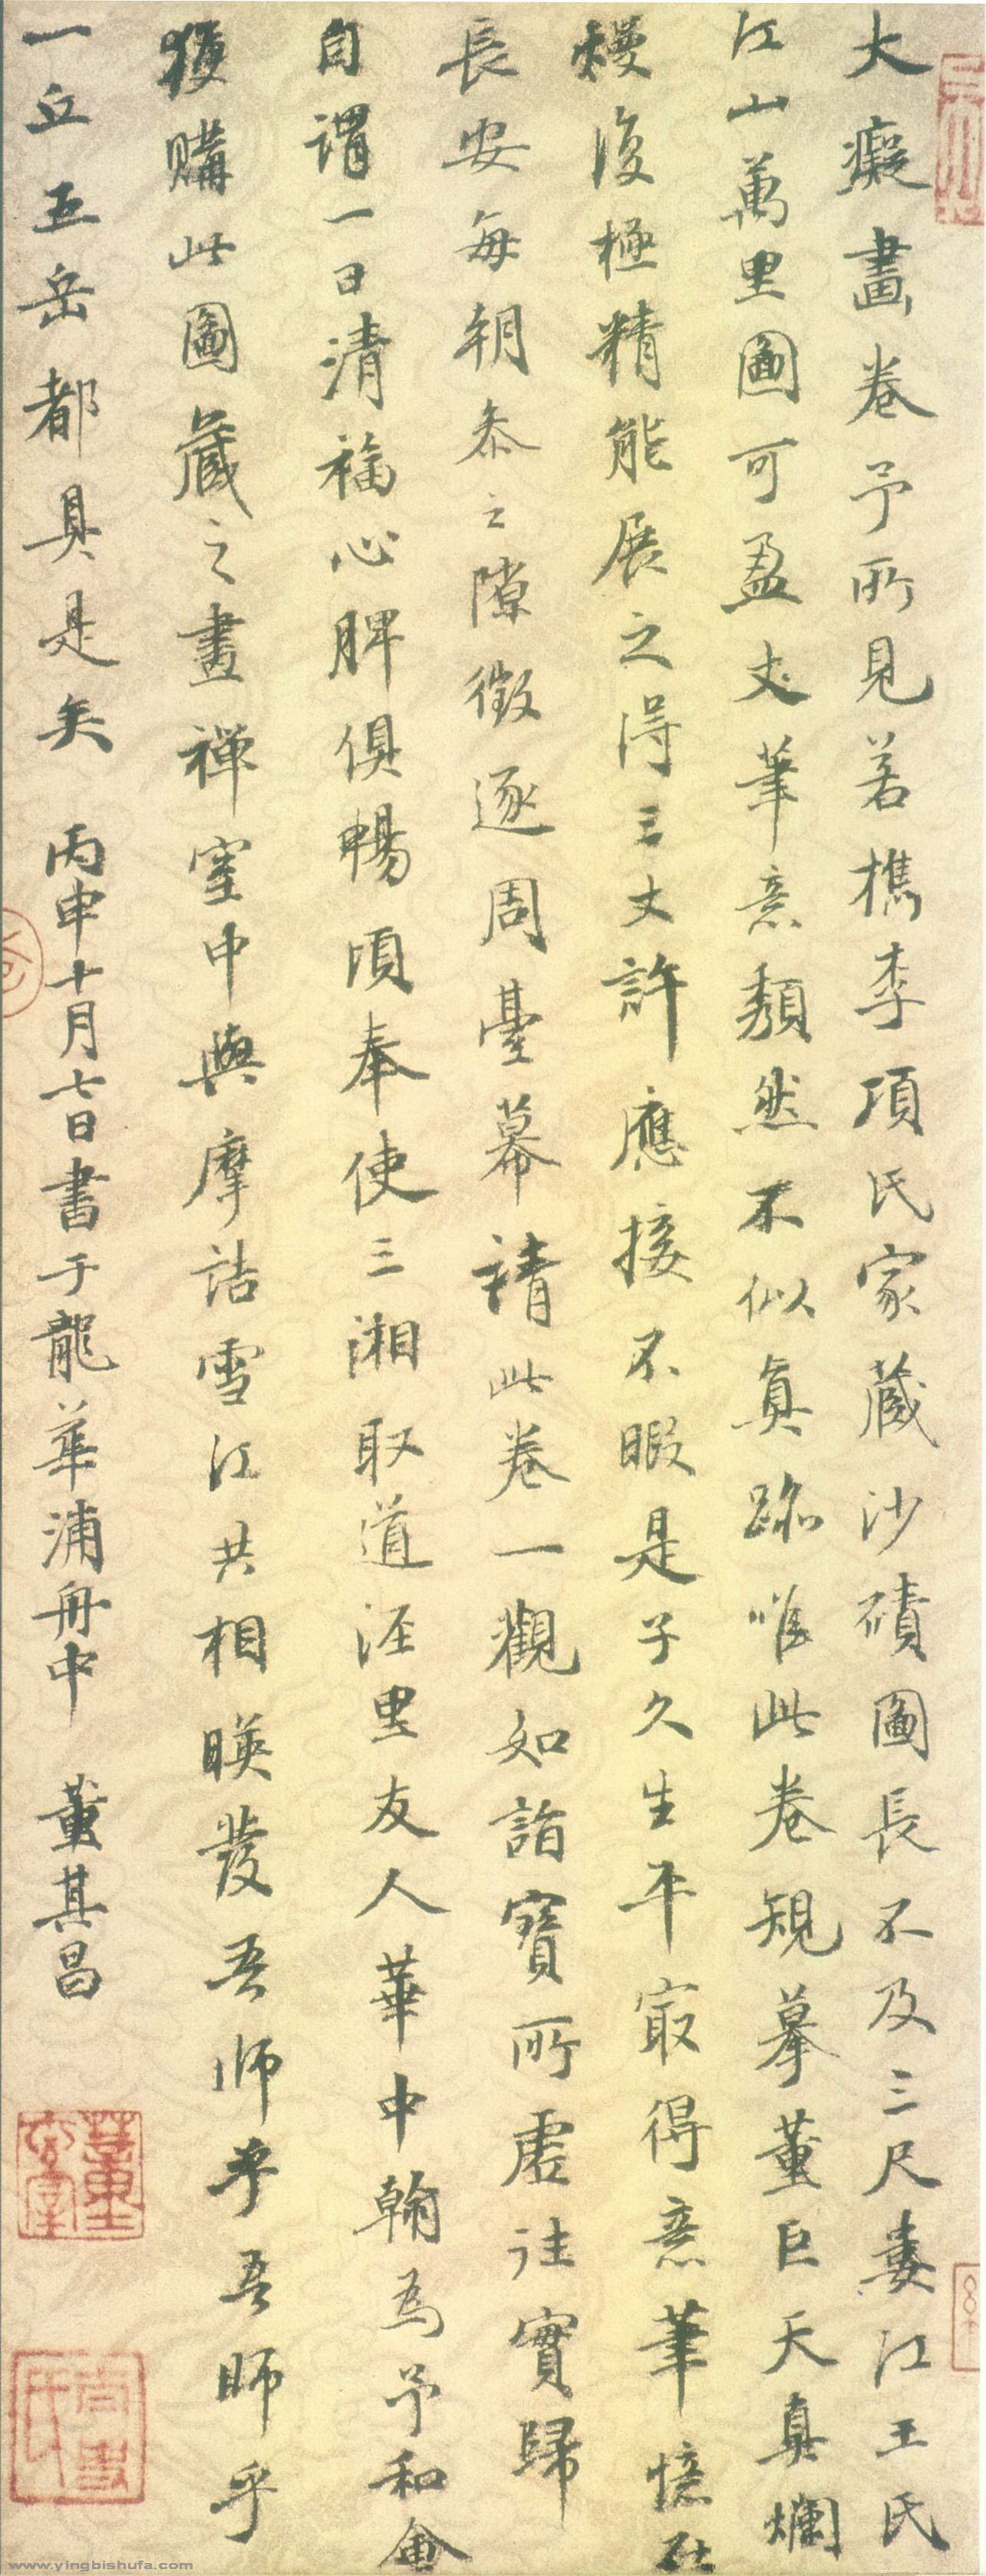 大癡畫卷予所見若檇李項氏家藏沙磧圖長不及三尺婁江王氏
江山萬里圖可盈丈筆意頹然不似真跡唯此卷規摹董巨天真爛
熳復極精能展之得三丈許應接不暇是子久生平最得意筆憶在
長安每朝參之隙徵逐周臺幕請此卷一觀如詣寶所虛往實歸
自謂一日清福心脾俱暢頃奉使三湘取道涇里友人華中翰為予和會
獲購此圖藏之畫禪室中與摩詰雪江共相暎發吾師乎吾師乎
一丘五岳都具是矣 丙申十月七日書于龍華浦舟中 董其昌
www.yingbishufa.com